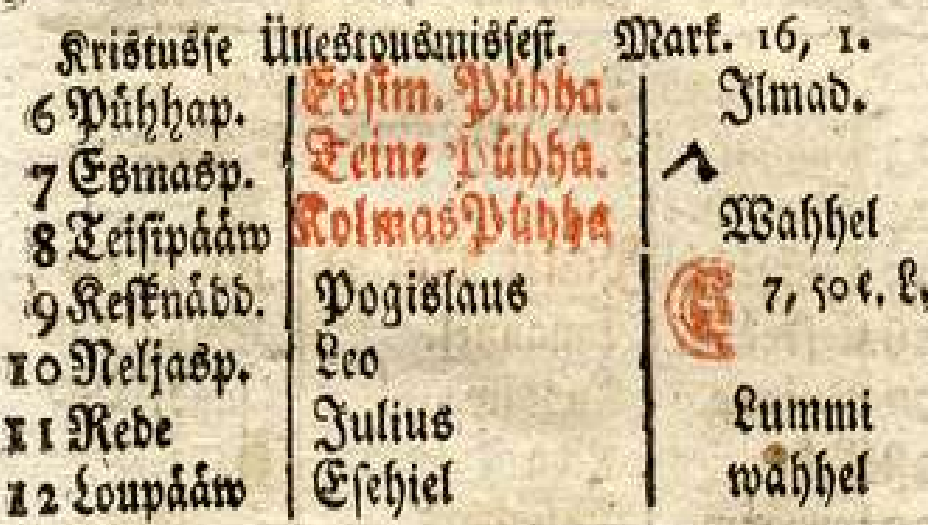 Kristusse Üllestousmissest. Mark. 16, 1.
6 Pühhap. Essim. Pühha. Ilmad.
7 Esmasp. Teine Pühha.
8 Teisipääw Kolmas Pühha Wahhel
9 Kesknädd. Pogislaus 7, 50 e. L,
10 Neljasp. Leo
11 Rede Julius Lummi
12 Loupääw Esehiel wahhel